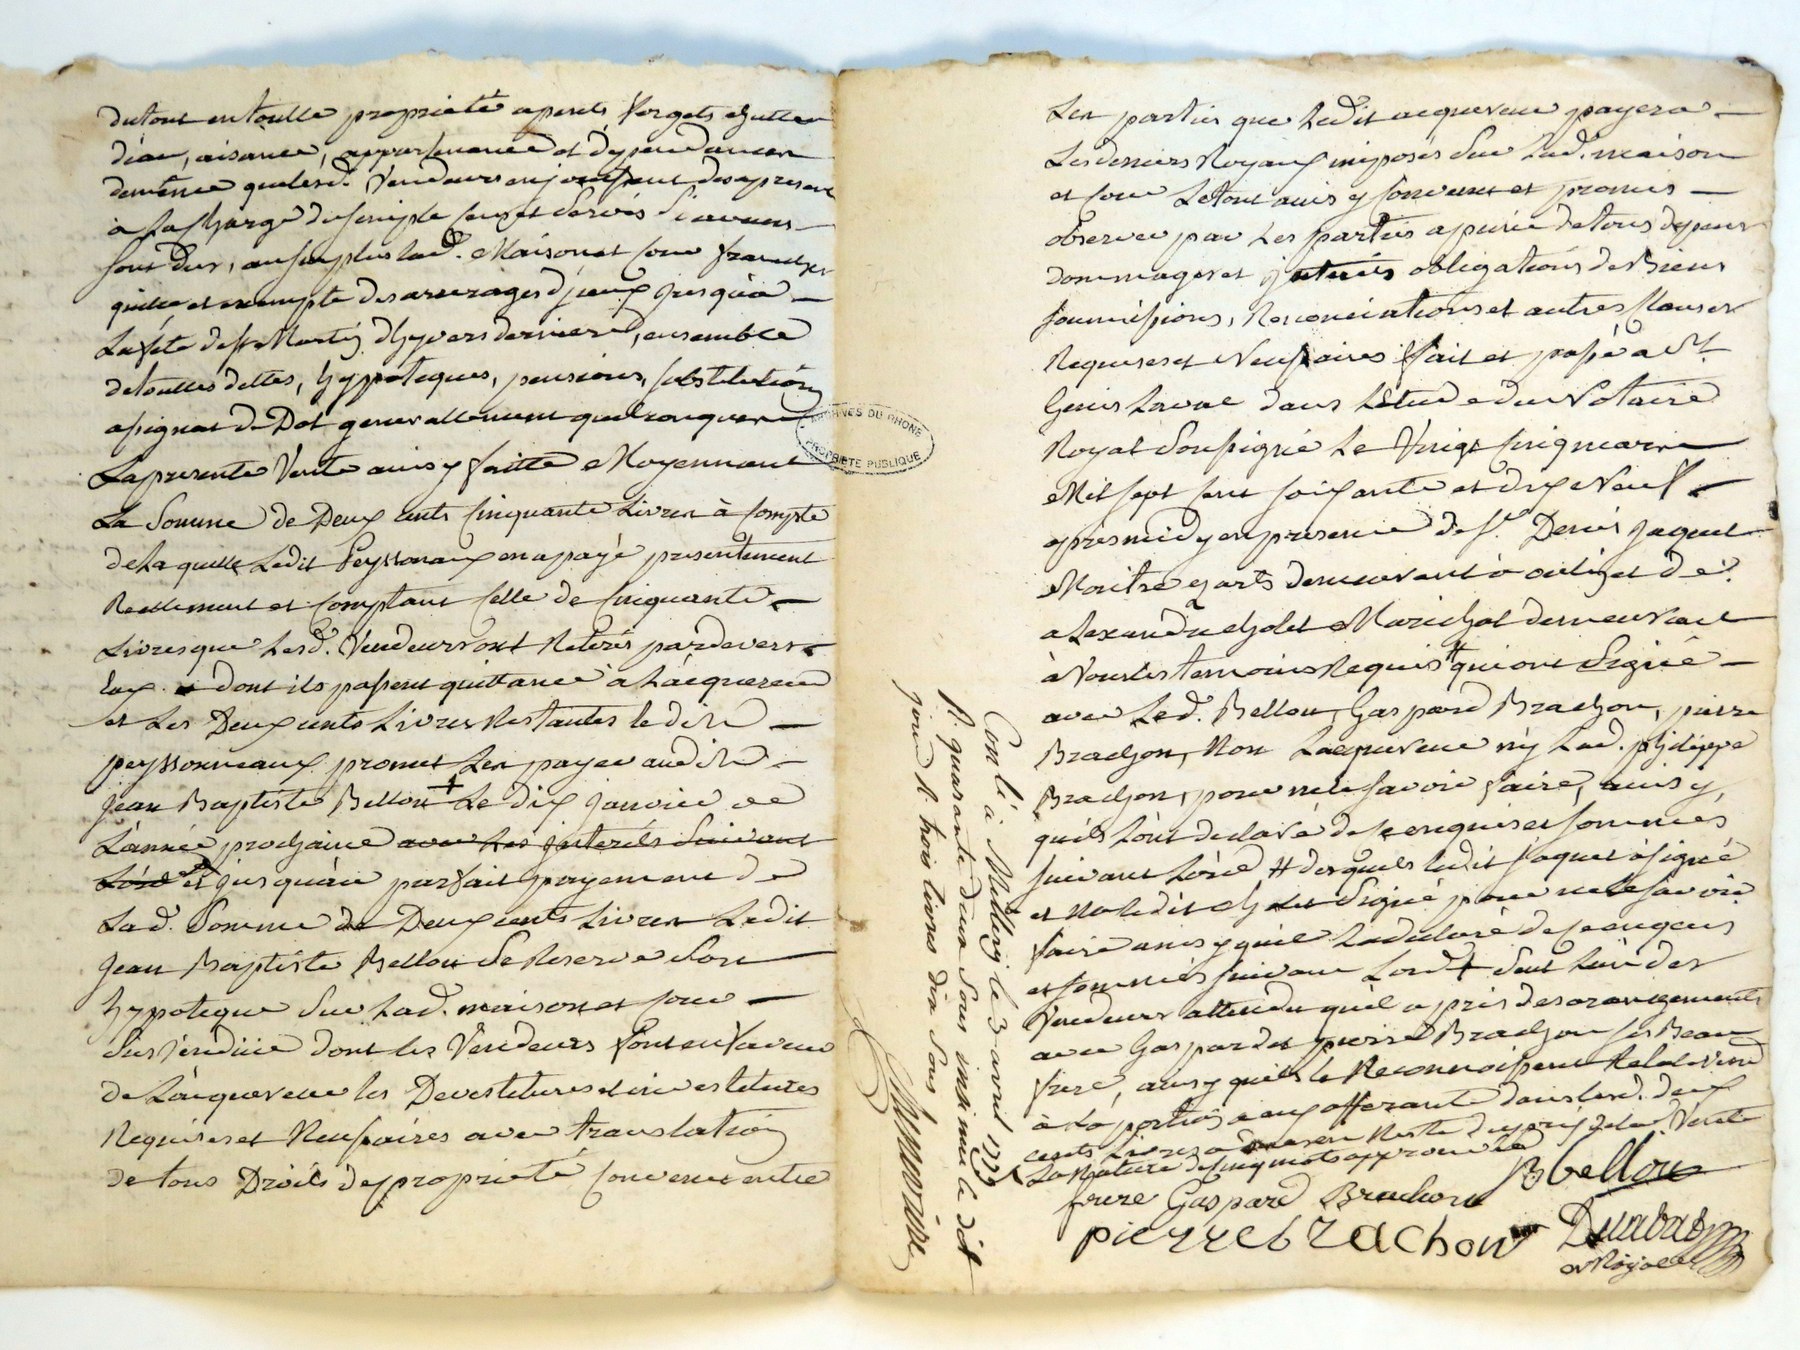 du tout en toutte proprieté apents Vergets Egutter
d'eau, aisance, appartenance et dépendancer
de même que lesd. Vendeurs en jouissent des apresent
à la charge du simple cens et servis si aucuns
sont dus, au surplus lad. Maison et cour franche
quitte et exempte des arrerages d'jceux jusqu'à
La fete de st Martin d'hyvers dernierd, ensemble
de touttes dettes, hyppoteques, pensions, substitution
assignat de Dot generallement quelconquer
La presente Vente ainsy faitte Moyennant
La Somme de Deux cents Cinquante Livrer à Compte
de la quelle Ledit Peyssonaux en a payé presentement
Reellement et Comptant Celle de Cinquante
Livres que Lesd. Vendeurs ont Retirés pardevers
Eux dont ils passent quittance à L'acquereur
et Les Deux cents Livres Restantes le dit
peyssonneaux promet Les payer audit
Jean Baptiste Bellon + Le dix janvier de
L'année prochaine avec Les jnterêts Suivant
Lord et jusqu'au parfait payement de
Lad. Somme de Deux cents Livrer Ledit
Jean Baptiste Bellon Se Reserve Son
hypoteque Sur Lad. maison et cour
Sus Vendüe dont les Vendeurs font en faveur
de L'acquereur les Devestitures et investitures
Requises et Necessaires avec translation
de tous Droits de proprieté Convenu entre
Les parties que Ledit acquereur payera
Les deniers Royaux imposés Sur Lad. maison
et cour Le tout ainsy Convenu et promis
observer par Les parties a peine de tous depens
dommages et jnterêts obligations de Biens
soumissions, Renonciations et autres Clauses
Requises et Necessaires fait et passé a St
Genis Laval dans L'étude du Notaire
Royal Soussigné Le Vingt Cinq mars
Mil sept cent soixante et dix Neuf
apres midy en presence de sr. Denis Jaquet
Maitre ez arts demeurant à oulin et de
alexandre Cholet Marichal demeurant
à Vourles temoins Requis # qui ont Signé
avec Led. Bellon, Gaspard Brachon, pierre
Brachon, Non Lacquereur n'y Lad. philippe
Brachon, pour ne le savoir faire, ainsy
qu'ils L'ont declaré de ce enquis et sommés
suivant L'ord # desquels ledit Jaquet à signé
et Non Ledit Cholet Signé pour ne le savoir
faire ainsy qu'il La declaré de ce enquis
et sommés suivant Lord + Seul L'un des
Vendeurs attendu qu'il a pris des arrangements
avec Gaspard et pierre Brachon ses Beau
frere, ainsy qu'ils le Reconnoissent Relativement
à La portion eux afferante dans lesd. deux
cents Livres Reste du prix de la Vente
La Rature de cinq mots approuvée
frere Gaspard Brachon
B bellon
pierre brachon
Durabat
no Royal
Con lé à Millery le 3 avril 1779
R. quarante deux Sous insinué le dit
jour R. trois livres dix Sous
ARCHIVES DU RHONE
PROPRIETE PUBLIQUE